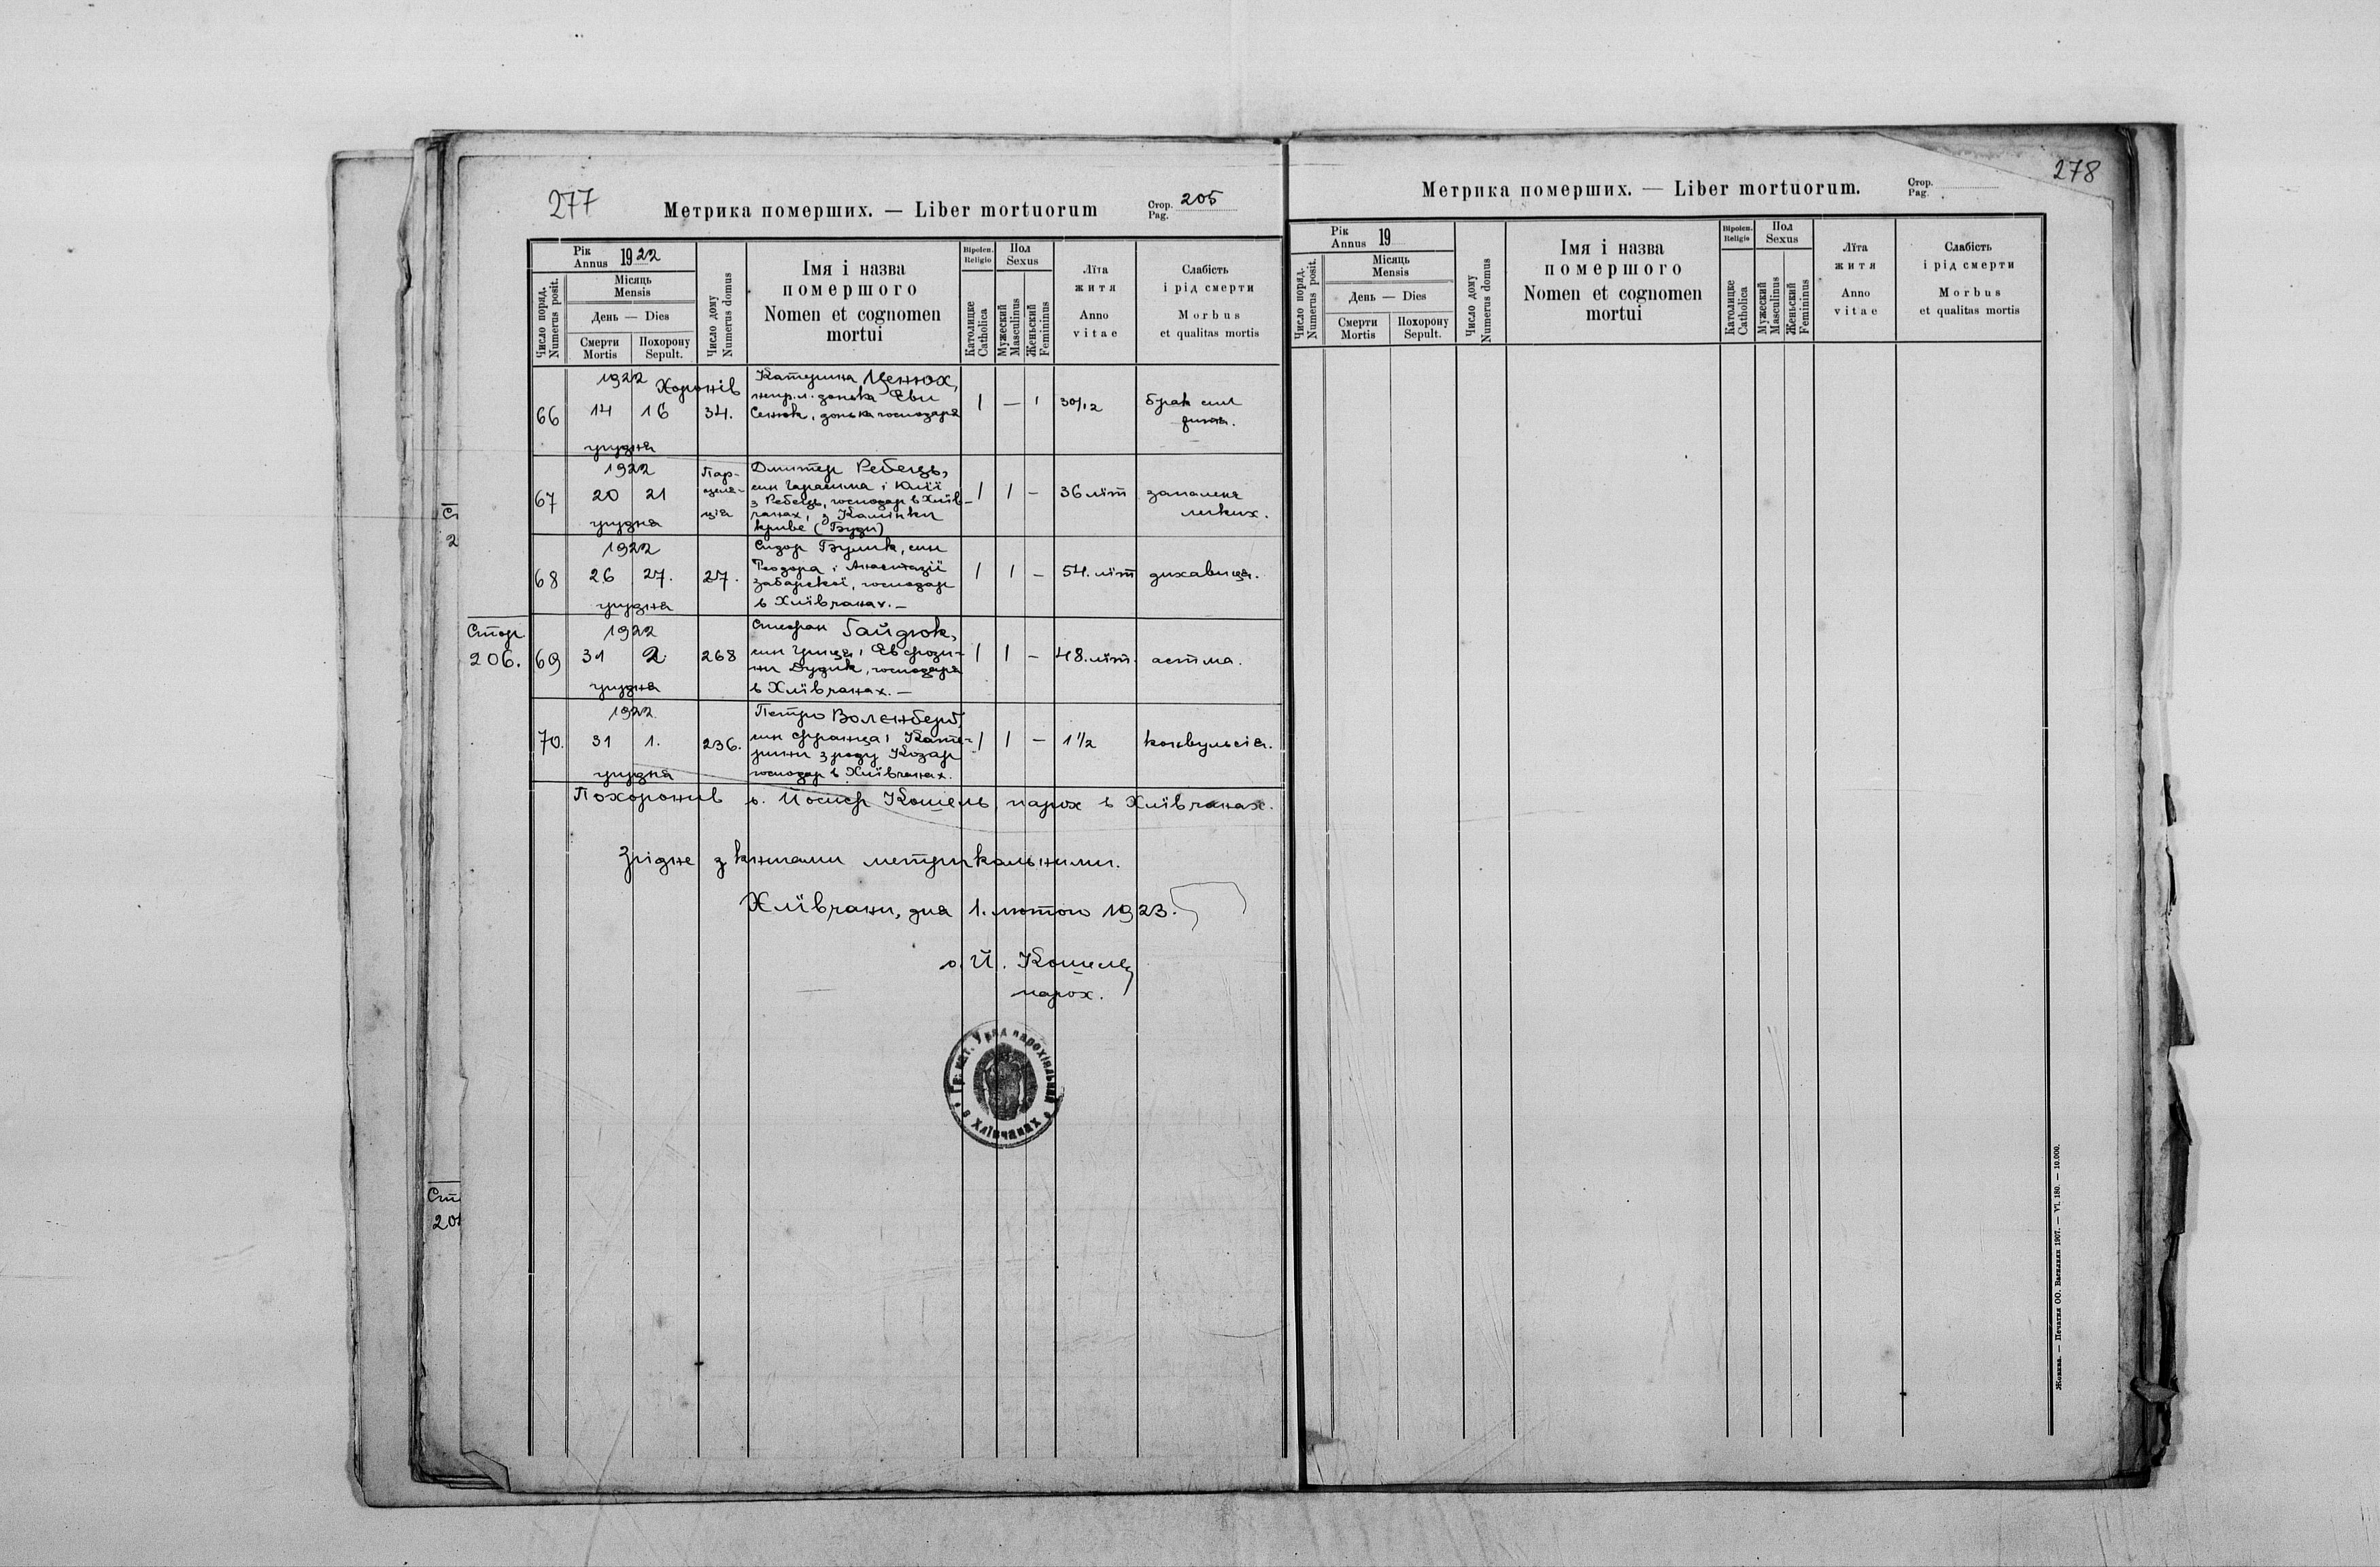 277
Метрика померших. — Liber mortuorum
Стор. 205
Pag.
Рік
Annus 1922
Місяць
Mensis
День — Dies
Смерти
Mortis
Похорону
Sepult.
Число поряд.
Numerus posit.
Число дому
Numerus domus
Імя і назва
помершого
Nomen et cognomen
mortui
Віроісп.
Religio
Католицке
Catholica
Пол
Sexus
Мужеский
Masculinus
Женьский
Femininus
Лїта
житя
Anno
vitae
Слабість
і рід смерти
Morbus
et qualitas mortis
1922
66 14 16
грудня
Хоронів
34.
Катерина Ценюх,
непр.л. донька Еви
Сенюк, донька господаря
1 — 1
30/12
брак сил
1922
67 20 21
грудня
Пар-
целя-
ція
Дмитер Ребець,
син Гарасима і Юлії
з Ребець, господар в Хлїв-
чанах, з Камінки
криве (Буди)
1 1 —
36 лїт
запаленя
легких.
1922
68 26 27. 27.
грудня
Сидор Гулик, син
Теодора і Анастазії
Забарскої, господар
в Хлївчанах. —
1 1 —
54. лїт
духавиця.
Стор
206.
1922
69 31 2. 268
грудня
Стефан Гайдюк,
син Гриця і Евфрози-
ни Дудик, господаря
в Хлївчанах. —
1 1 —
48. лїт.
астма.
1922
70. 31 1. 236.
грудня
Петро Воленберг,
син Франца і Кате-
рини з роду Козар
господар в Хлївчанах.
1 1 —
1 1/2
конвульсія.
Похоронив о. Йосиф Кошель, парох в Хлївчанах.
Згідне з книгами метрикальними.
Хлївчани, дня 1. лютого 1923.
о. Й. Кошель
парох.
Гр. кат. Уряд парохіяльний в Хлївчанах
278
Метрика померших. — Liber mortuorum.
Стор.
Pag.
Рік
Annus 19
Місяць
Mensis
День — Dies
Смерти
Mortis
Похорону
Sepult.
Число поряд.
Numerus posit.
Число дому
Numerus domus
Імя і назва
помершого
Nomen et cognomen
mortui
Віроісп.
Religio
Католицке
Catholica
Пол
Sexus
Мужеский
Masculinus
Женьский
Femininus
Лїта
житя
Anno
vitae
Слабість
і рід смерти
Morbus
et qualitas mortis
Жовква. — Печатня ОО. Василиян 1907. — VI. 180. — 10.000.